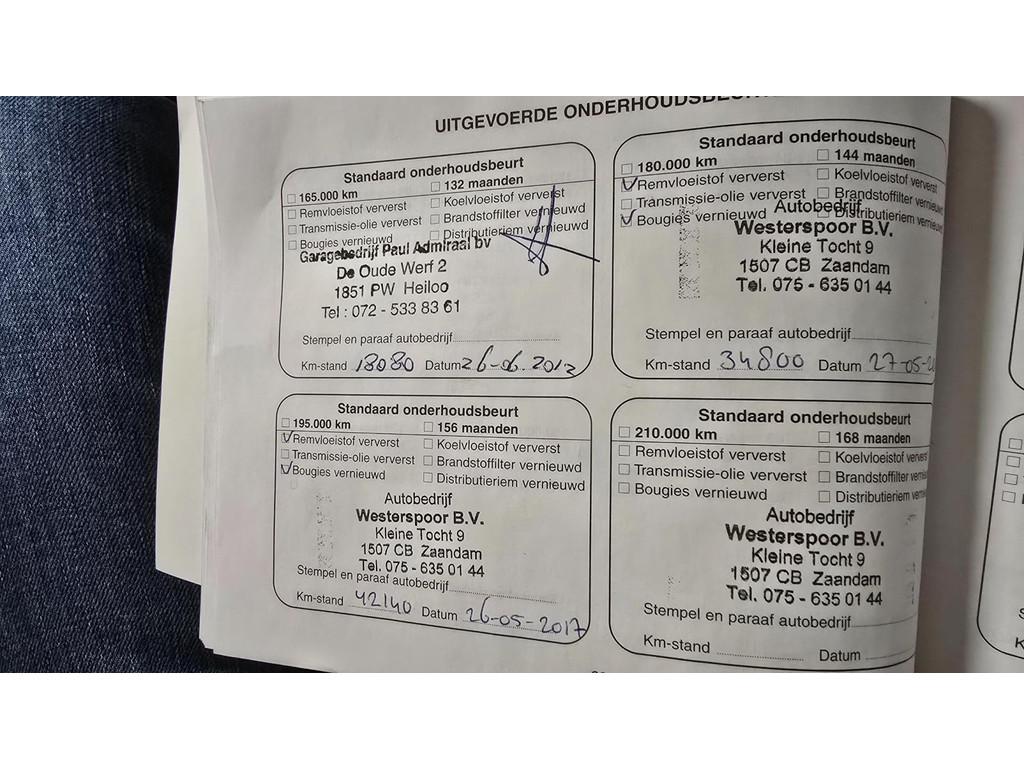 UITGEVOERDE
Standaard onderhoudsbeurt
165.000 km 132 maanden
Remvloeistof ververst Koelvloeistof ververst
Transmissie-olie ververst Brandstoffilter vernieuwd
Bougies vernieuwd Distributieriem vernieuwd
Garagebedrijf Paul Admiraal bv
De Oude Werf 2
1851 PW Heiloo
Tel : 072 - 533 83 61
Stempel en paraaf autobedrijf
Km-stand 18080 Datum 26-06-2012
Standaard onderhoudsbeurt
180.000 km 144 maanden
Remvloeistof ververst Koelvloeistof ververst
Transmissie-olie ververst Brandstoffilter vernieuwd
Bougies vernieuwd Distributieriem vernieuwd
Autobedrijf
Westerspoor B.V.
Kleine Tocht 9
1507 CB Zaandam
Tel. 075 - 635 01 44
Stempel en paraaf autobedrijf
Km-stand 34800 Datum 27-05-20
Standaard onderhoudsbeurt
195.000 km 156 maanden
Remvloeistof ververst Koelvloeistof ververst
Transmissie-olie ververst Brandstoffilter vernieuwd
Bougies vernieuwd Distributieriem vernieuwd
Autobedrijf
Westerspoor B.V.
Kleine Tocht 9
1507 CB Zaandam
Tel. 075 - 635 01 44
Stempel en paraaf autobedrijf
Km-stand 42140 Datum 26-05-2017
Standaard onderhoudsbeurt
210.000 km 168 maanden
Remvloeistof ververst Koelvloeistof ververst
Transmissie-olie ververst Brandstoffilter vernieuwd
Bougies vernieuwd Distributieriem vernieuwd
Autobedrijf
Westerspoor B.V.
Kleine Tocht 9
1507 CB Zaandam
Tel. 075 - 635 01 44
Stempel en paraaf autobedrijf
Km-stand Datum